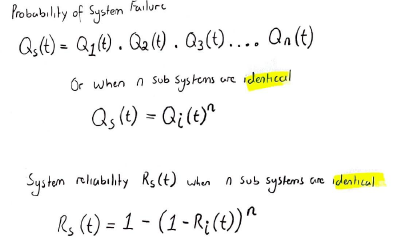 Probability of System Failure
Qs(t) = Q1(t) . Q2(t) . Q3(t) .... Qn(t)
Or when n sub systems are identical
Qs(t) = Qi(t)^n
System reliability Rs(t) when n sub systems are identical
Rs(t) = 1 - (1-Ri(t))^n